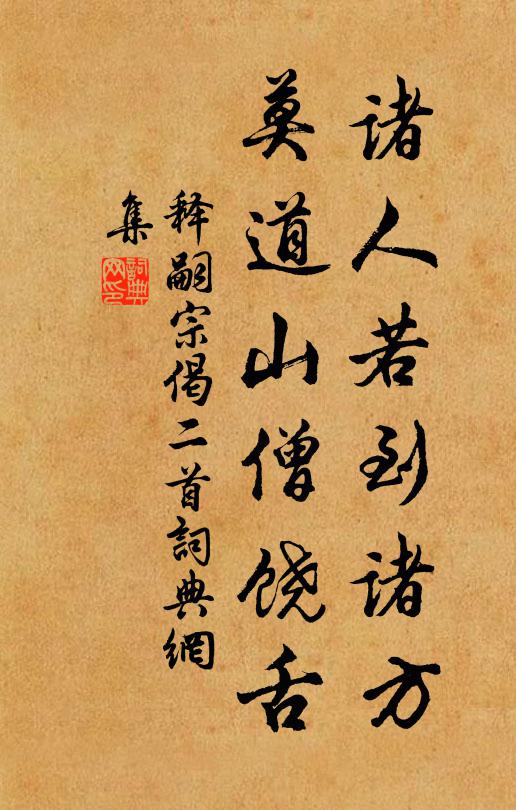 诸人若到诸方
莫道山僧饶舌
释嗣宗偈二首詞典網
集
詞典网印